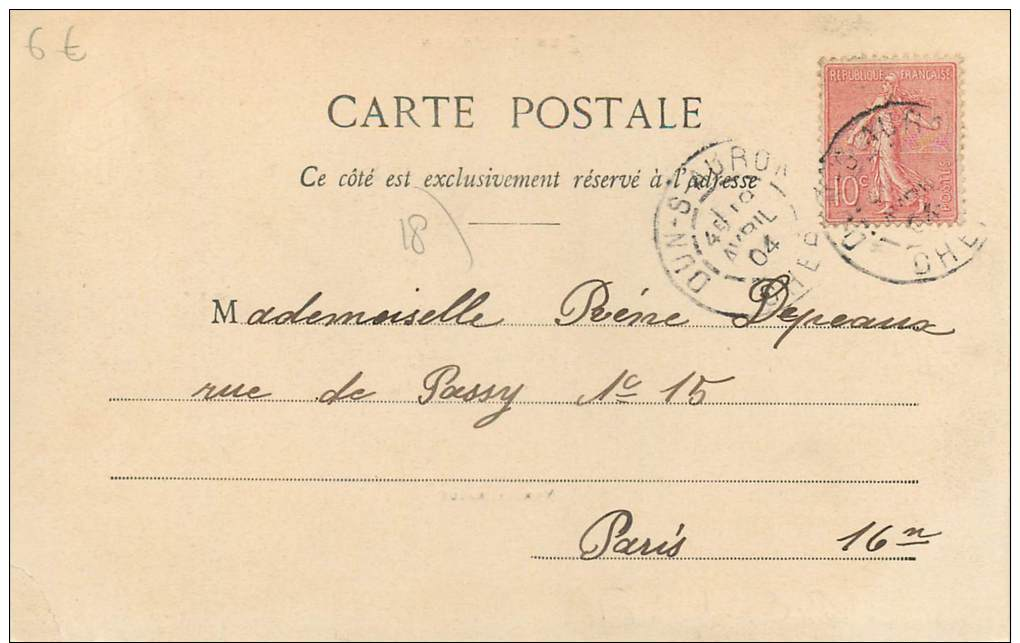 6 €
RÉPUBLIQUE FRANÇAISE
10c POSTES
CARTE POSTALE
Ce côté est exclusivement réservé à l'adresse
18
DUN-S-AURON
18
AVRIL
04
CHER
Mademoiselle Reine Depeaux
rue de Passy No 15
Paris 16e